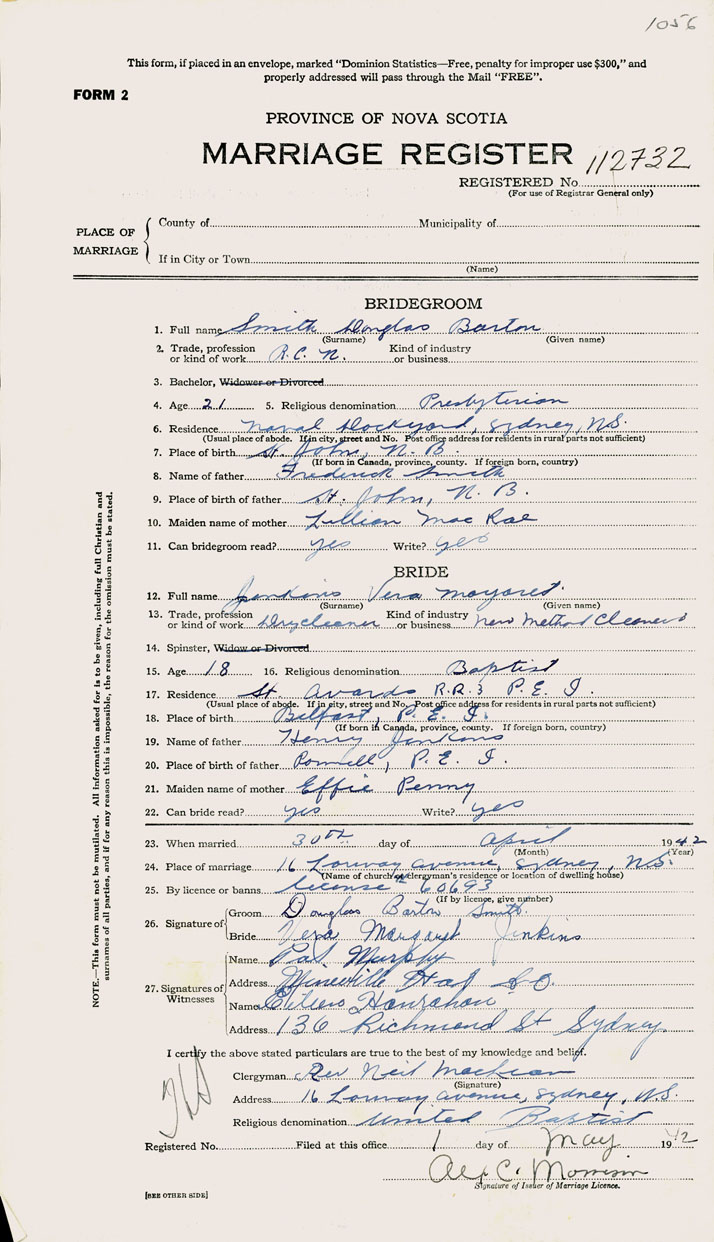 1056
This form, if placed in an envelope, marked "Dominion Statistics—Free, penalty for improper use $300," and
properly addressed will pass through the Mail "FREE".
FORM 2
PROVINCE OF NOVA SCOTIA
MARRIAGE REGISTER
REGISTERED No. 112732
(For use of Registrar General only)
PLACE OF MARRIAGE
County of Municipality of
If in City or Town
(Name)
BRIDEGROOM
1. Full name Smith Douglas Barton
(Surname) (Given name)
2. Trade, profession or kind of work R.C.N. Kind of industry or business
3. Bachelor, Widower or Divorced
4. Age 21 5. Religious denomination Presbyterian
6. Residence Naval Dockyard, Sydney, N.S.
(Usual place of abode. If in city, street and No. Post office address for residents in rural parts not sufficient)
7. Place of birth St. John, N.B.
(If born in Canada, province, county. If foreign born, country)
8. Name of father Frederick Smith
9. Place of birth of father St. John, N.B.
10. Maiden name of mother Lillian Mac Rae
11. Can bridegroom read? yes Write? yes
BRIDE
12. Full name Jenkins Vera Margaret
(Surname) (Given name)
13. Trade, profession or kind of work Drycleaner Kind of industry or business New Method Cleaners
14. Spinster, Widow or Divorced
15. Age 18 16. Religious denomination Baptist
17. Residence St. Avards R.R.3 P.E.I.
(Usual place of abode. If in city, street and No. Post office address for residents in rural parts not sufficient)
18. Place of birth Belfast, P.E.I.
(If born in Canada, province, county. If foreign born, country)
19. Name of father Henry Jenkins
20. Place of birth of father P.E.I.
21. Maiden name of mother Effie Penny
22. Can bride read? yes Write? yes
23. When married 30th day of April 1942
(Month) (Year)
24. Place of marriage 16 Lorway avenue, Sydney, N.S.
(Name of church or clergyman's residence or location of dwelling house)
25. By licence or banns license 60693
(If by licence, give number)
26. Signature of
Groom Douglas Barton Smith
Bride Vera Margaret Jenkins
27. Signatures of Witnesses
Name Pat Murphy
Address Mineville
Name Hanrahan
Address 136 Richmond St Sydney
I certify the above stated particulars are true to the best of my knowledge and belief.
Clergyman Rev Neil
(Signature)
Address 16 Lorway avenue, Sydney, N.S.
Religious denomination United Baptist
Registered No. Filed at this office 1 day of May 1942
Alex C. Morrison
Signature of Issuer of Marriage Licence.
[SEE OTHER SIDE]
NOTE.—This form must not be mutilated. All information asked for is to be given, including full Christian and
surnames of all parties, and if for any reason this is impossible, the reason for the omission must be stated.